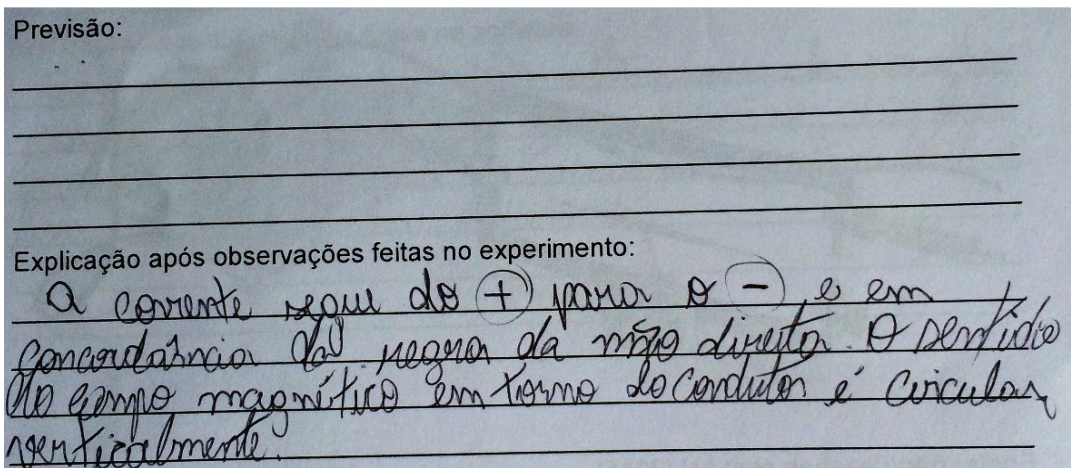 Previsão:
Explicação após observações feitas no experimento:
A corrente segue do + para o -, e em
concordância da regra da mão direita. O sentido
do campo magnético em torno do condutor é circular,
verticalmente.